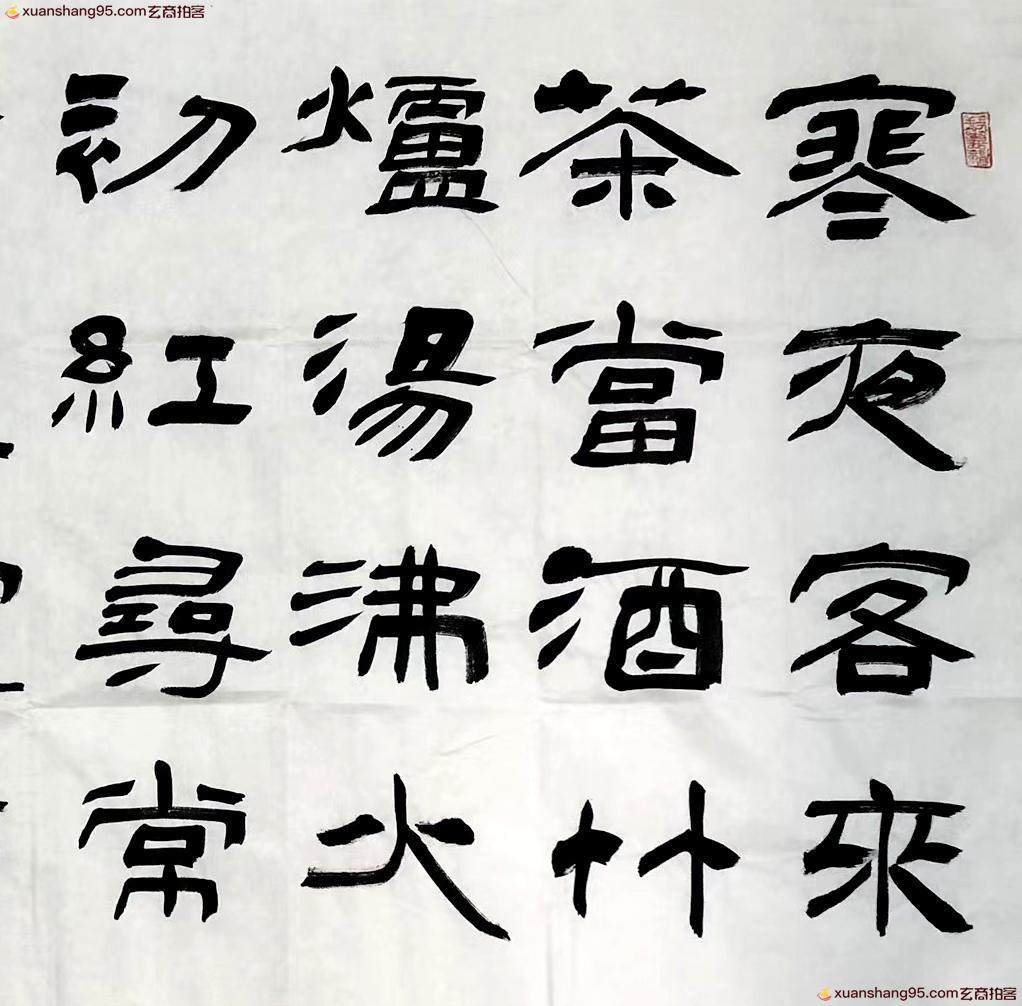 xuanshang95.com玄商拍客
寒夜客來
茶當酒竹
爐湯沸火
初紅尋常
xuanshang95.com玄商拍客